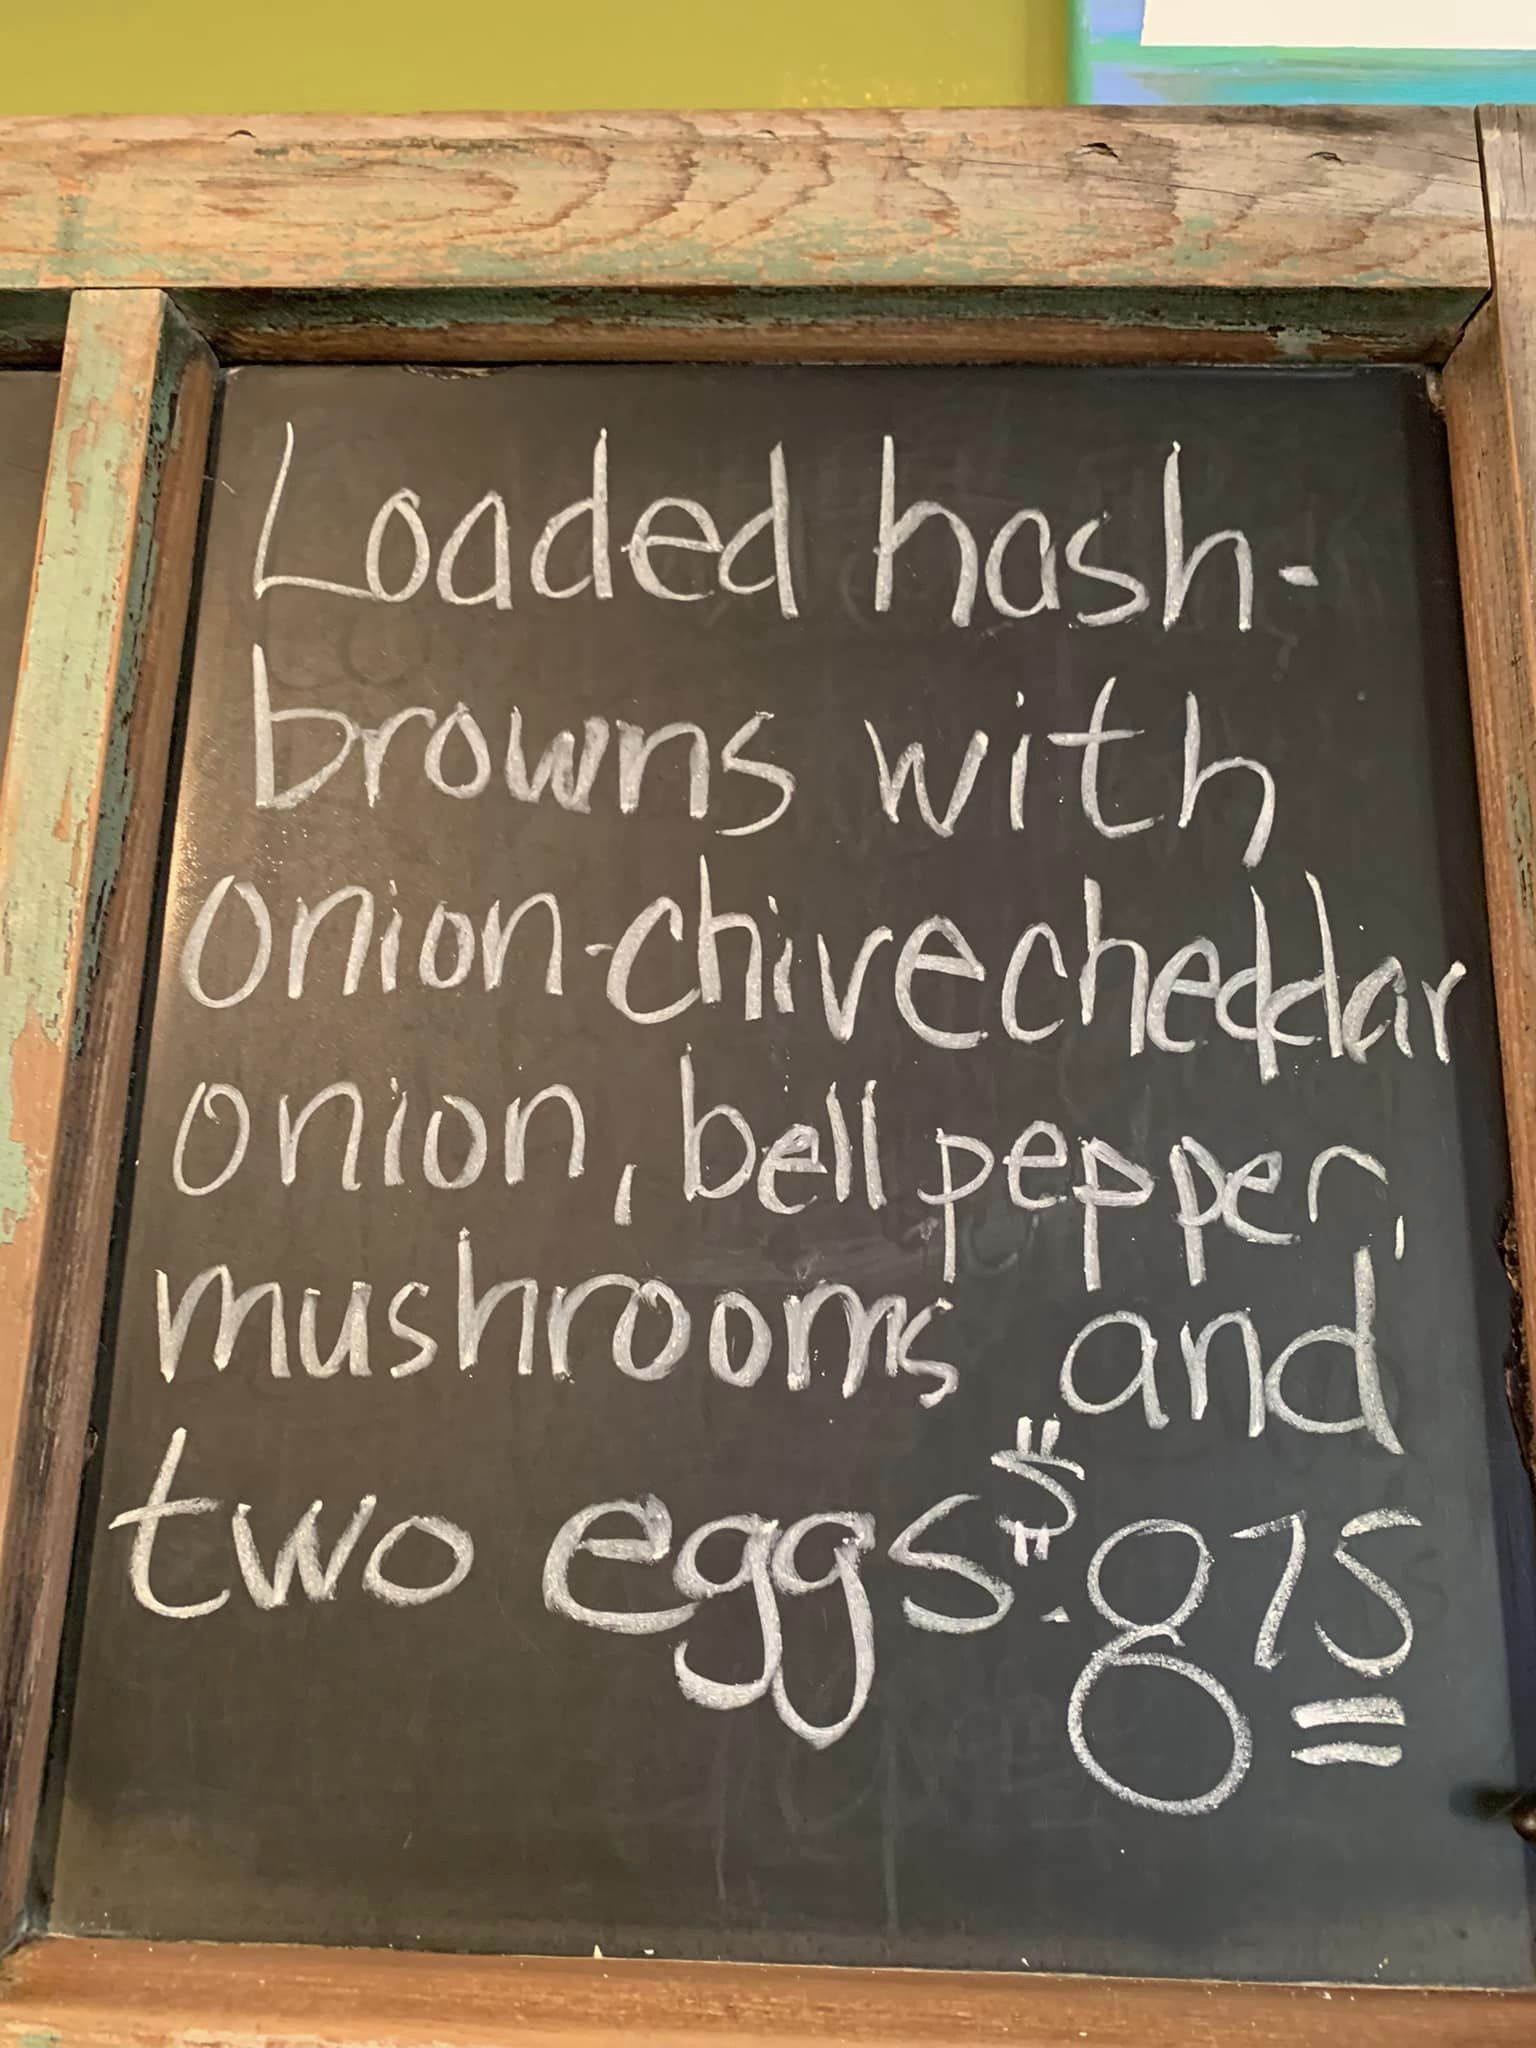 Loaded hash-
browns with
onion-chive cheddar
onion, bell pepper,
mushrooms and
two eggs. $8 75